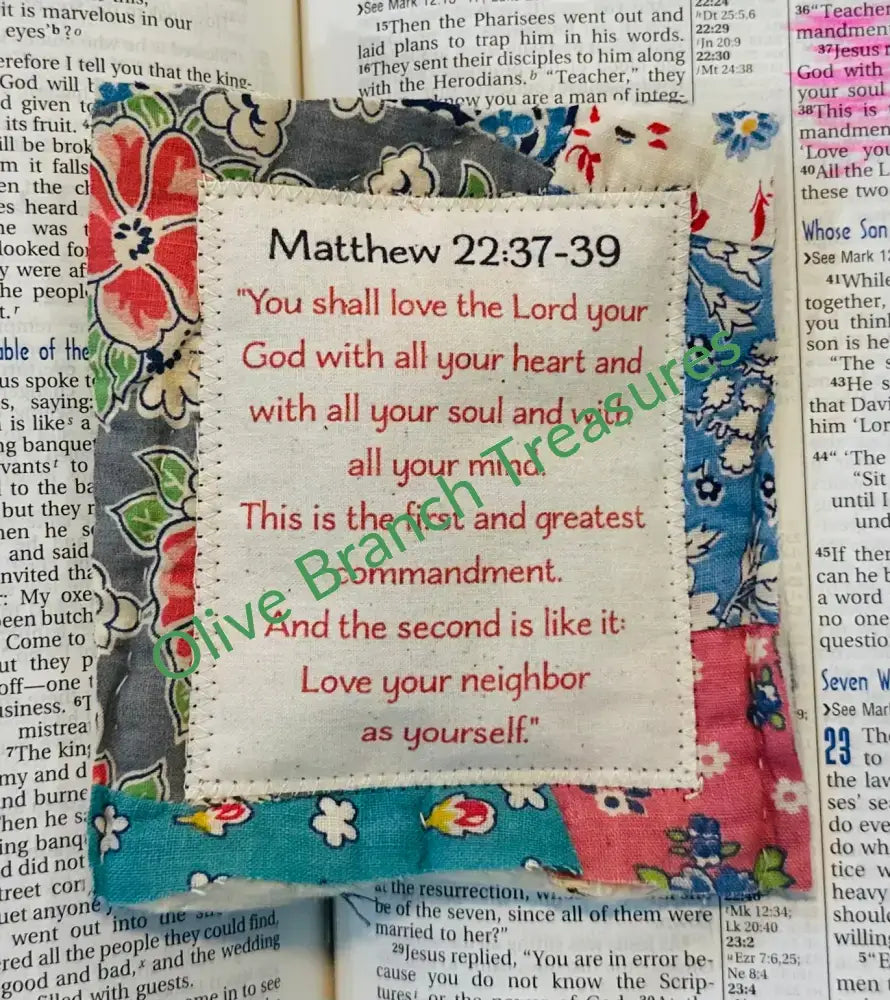 it is marvelous in our
eyes'b?o
erefore I tell you that the king-
God will
d given to
its fruit.
ill be brok
m it falls
en the ch
es heard
he was
looked for
y were af
he people
t.r
able of the
us spoke t
s, saying:
is likes a
ng banquet
vantst to
to the ba
but they r
hen he se
and said
nvited tha
r: My oxe
been butch
Come to
ut they p
off—one t
usiness. 6T
mistrea
7The king
my and d
nd burne
hen he sa
ing banqu
d did not
treet cor
uet anyone
went out into the
red all the people they could find,
good and bad,x and the wedding
filled with guests.
me in to see
>See Mark 12
15Then the Pharisees went out and
laid plans to trap him in his words.
16They sent their disciples to him along
with the Herodians.b "Teacher," they
know you are a man of integ-
22:24
Dt 25:5,6
22:29
Jn 20:9
22:30
Mt 24:38
Matthew 22:37-39
"You shall love the Lord your
God with all your heart and
with all your soul and with
all your mind.
This is the first and greatest
commandment.
And the second is like it:
Love your neighbor
as yourself."
Olive Branch Treasures
at the resurrection,
be of the seven, since all of them were
married to her?"
29Jesus replied, "You are in error be-
cause you do not know the Scrip-
tures
Mk 12:34;
Lk 20:40
23:2
Ezr 7:6,25;
Ne 8:4
23:4
9;
36"Teacher
mandment
37Jesus r
God with
your soul
38This is
mandmen
'Love you
40All the L
these two
Whose Son
>See Mark 12
41While
together,
you think
son is he
"The s
43He s
that Davi
him 'Lor
44" 'The
"Sit
until I
und
45If then
can he b
a word
no one
question
Seven W
>See Mar
23 The
to
the law
ses' se
do eve
do wh
tice w
heavy
should
willing
5"E
men